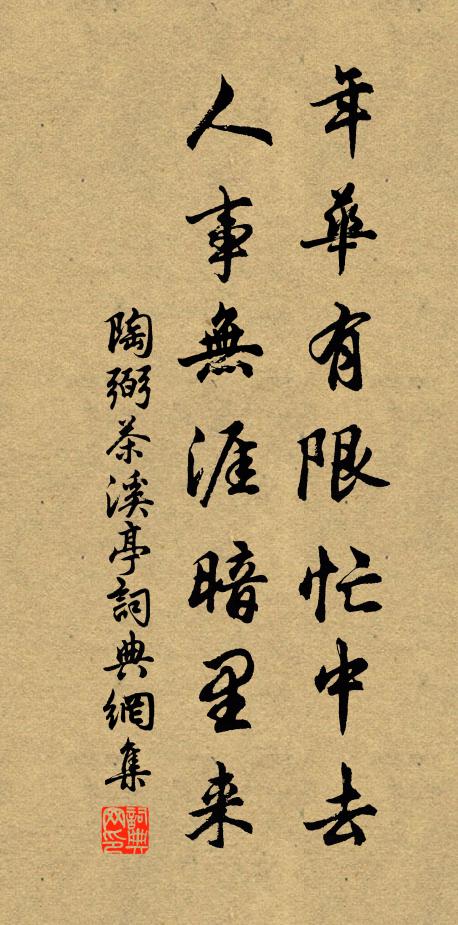 年華有限忙中去
人事無涯暗里来
陶弼茶溪亭詞典網集
詞典網印